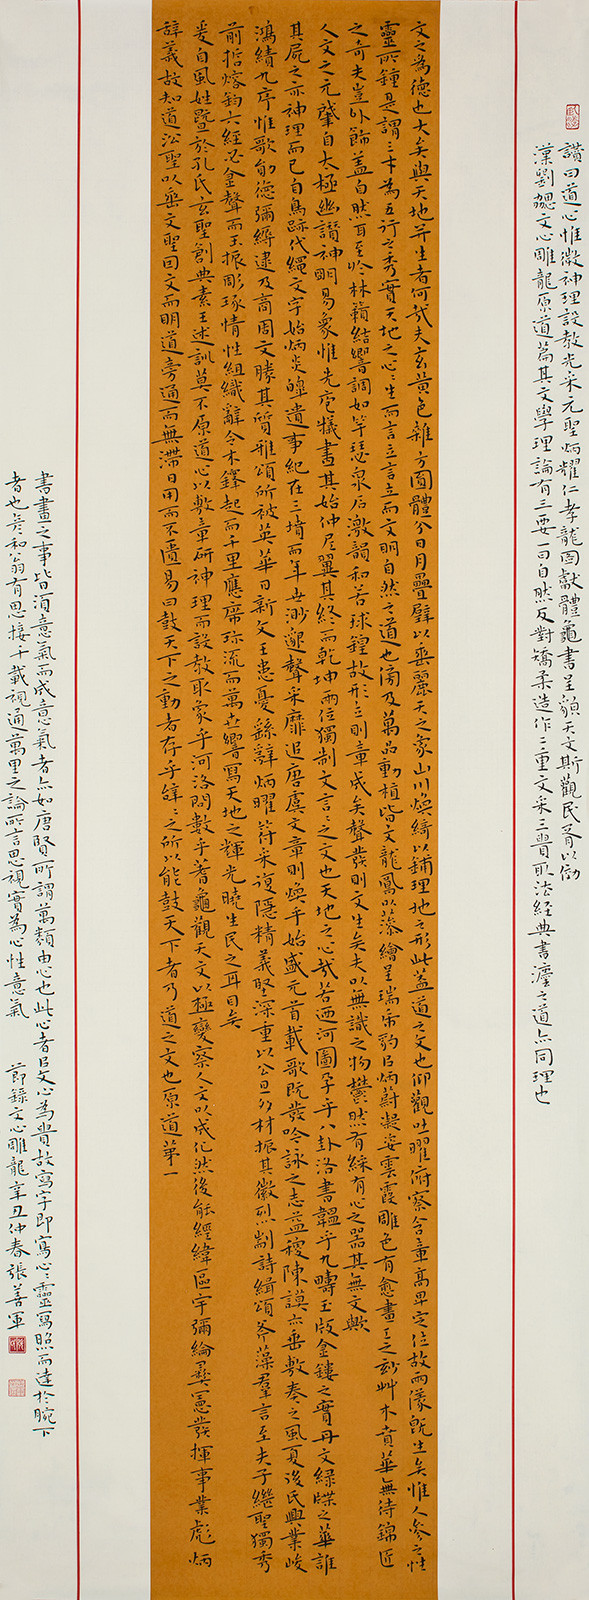 讚曰道心惟微神理設教光采元聖炳耀仁孝龍圖獻體龜書呈貌天文斯觀民胥以傚
漢劉勰文心雕龍原道篇其文學理論有三要一曰自然反對矯柔造作二重文采三貴取法經典書瀍之道亦同理也
文之為德也大矣與天地並生者何哉夫玄黃色雜方圓體分日月疊璧以垂麗天之象山川煥綺以鋪理地之形此蓋道之文也仰觀吐曜俯察含章高卑定位故兩儀既生矣惟人參之性
靈所鍾是謂三才為五行之秀實天地之心生而言立言立而文明自然之道也傍及萬品動植皆文龍鳳以藻繪呈瑞虎豹以炳蔚凝姿雲霞雕色有愈畫工之妙艸木賁華無待錦匠
之奇夫豈外飾蓋自然耳至於林籟結響調如竽瑟泉石激韻和若球鍠故形立則章成矣聲發則文生矣夫以無識之物鬱然有綵有心之器其無文歟
人文之元肇自太極幽讚神明易象惟先庖犧畫其始仲尼翼其終而乾坤兩位獨制文言言之文也天地之心哉若迺河圖孕乎八卦洛書韞乎九疇玉版金鏤之實丹文綠牒之華誰
其屍之亦神理而已自鳥跡代繩文字始炳炎皥遺事紀在三墳而年世渺邈聲采靡追唐虞文章則煥乎始盛元首載歌既發吟詠之志益稷陳謨亦垂敷奏之風夏後氏興業峻
鴻績九序惟歌勛德彌縟逮及商周文勝其質雅頌所被英華日新文王患憂繇辭炳曜符采復隱精義堅深重以公旦多材振其徽烈剬詩緝頌斧藻羣言至夫子繼聖獨秀
前哲熔鈞六經必金聲而玉振彫琢情性組織辭令木鐸起而千里應席珍流而萬世響寫天地之輝光曉生民之耳目矣
爰自風姓暨於孔氏玄聖創典素王述訓莫不原道心以敷章研神理而設教取象乎河洛問數乎蓍龜觀天文以極變察人文以成化然後能經緯區宇彌綸彝憲發揮事業彪炳
辭義故知道沿聖以垂文聖因文而明道旁通而無滯日用而不匱易曰鼓天下之動者存乎辭辭之所以能鼓天下者乃道之文也原道第一
書畫之事皆須意氣而成意氣者亦如唐賢所謂萬類由心也此心者以文心為貴故寫字即寫心心靈寫照而達於腕下
者也彥和翁有思接千載視通萬里之論所言思視實為心性意氣 節錄文心雕龍辛丑仲春張善軍